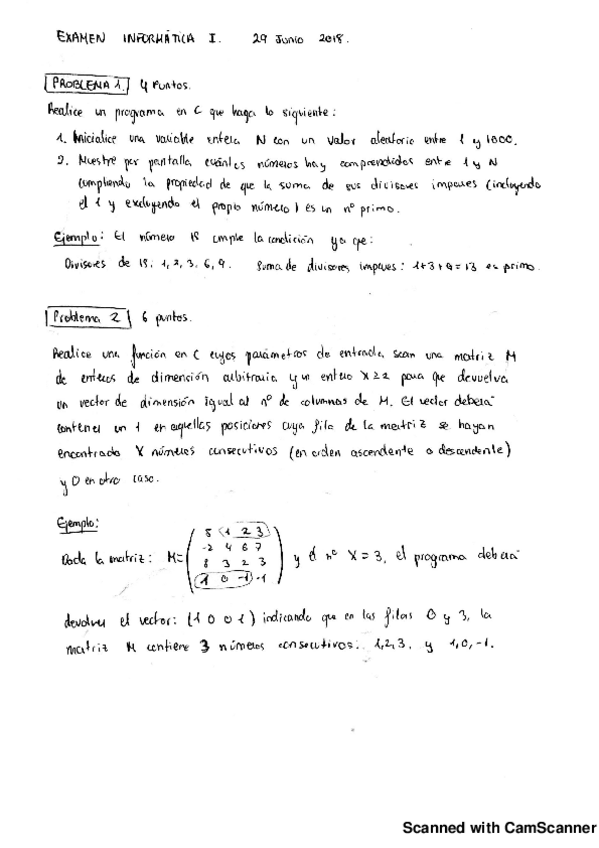 EXAMEN INFORMÁTICA I. 29 JUNIO 2018.
PROBLEMA 1. 4 Puntos.
Realice un programa en C que haga lo siguiente:
1. Inicialice una variable entera N con un valor aleatorio entre 1 y 1000.
2. Muestre por pantalla, cuántos números hay comprendidos entre 1 y N
cumpliendo la propiedad de que la suma de sus divisores impares (incluyendo
el 1 y excluyendo el propio número) es un nº primo.
Ejemplo: El número 18 cumple la condición ya que:
Divisores de 18: 1, 2, 3, 6, 9. Suma de divisores impares: 1+3+9=13 es primo.
Problema 2 6 puntos.
Realice una función en C cuyos parámetros de entrada sean una matriz M
de enteros de dimensión arbitraria y un entero X≥2 para que devuelva
un vector de dimensión igual al nº de columnas de M. El vector deberá
contener un 1 en aquellas posiciones cuya fila de la matriz se hayan
encontrado X números consecutivos (en orden ascendente o descendente)
y 0 en otro caso.
Ejemplo:
Dada la matriz: M= y el nº X=3, el programa deberá
5 1 2 3
-2 4 6 7
8 3 2 3
1 0 -1 -1
devolver el vector: (1 0 0 1) indicando que en las filas 0 y 3, la
matriz M contiene 3 números consecutivos: 1,2,3, y 1,0,-1.
Scanned with CamScanner